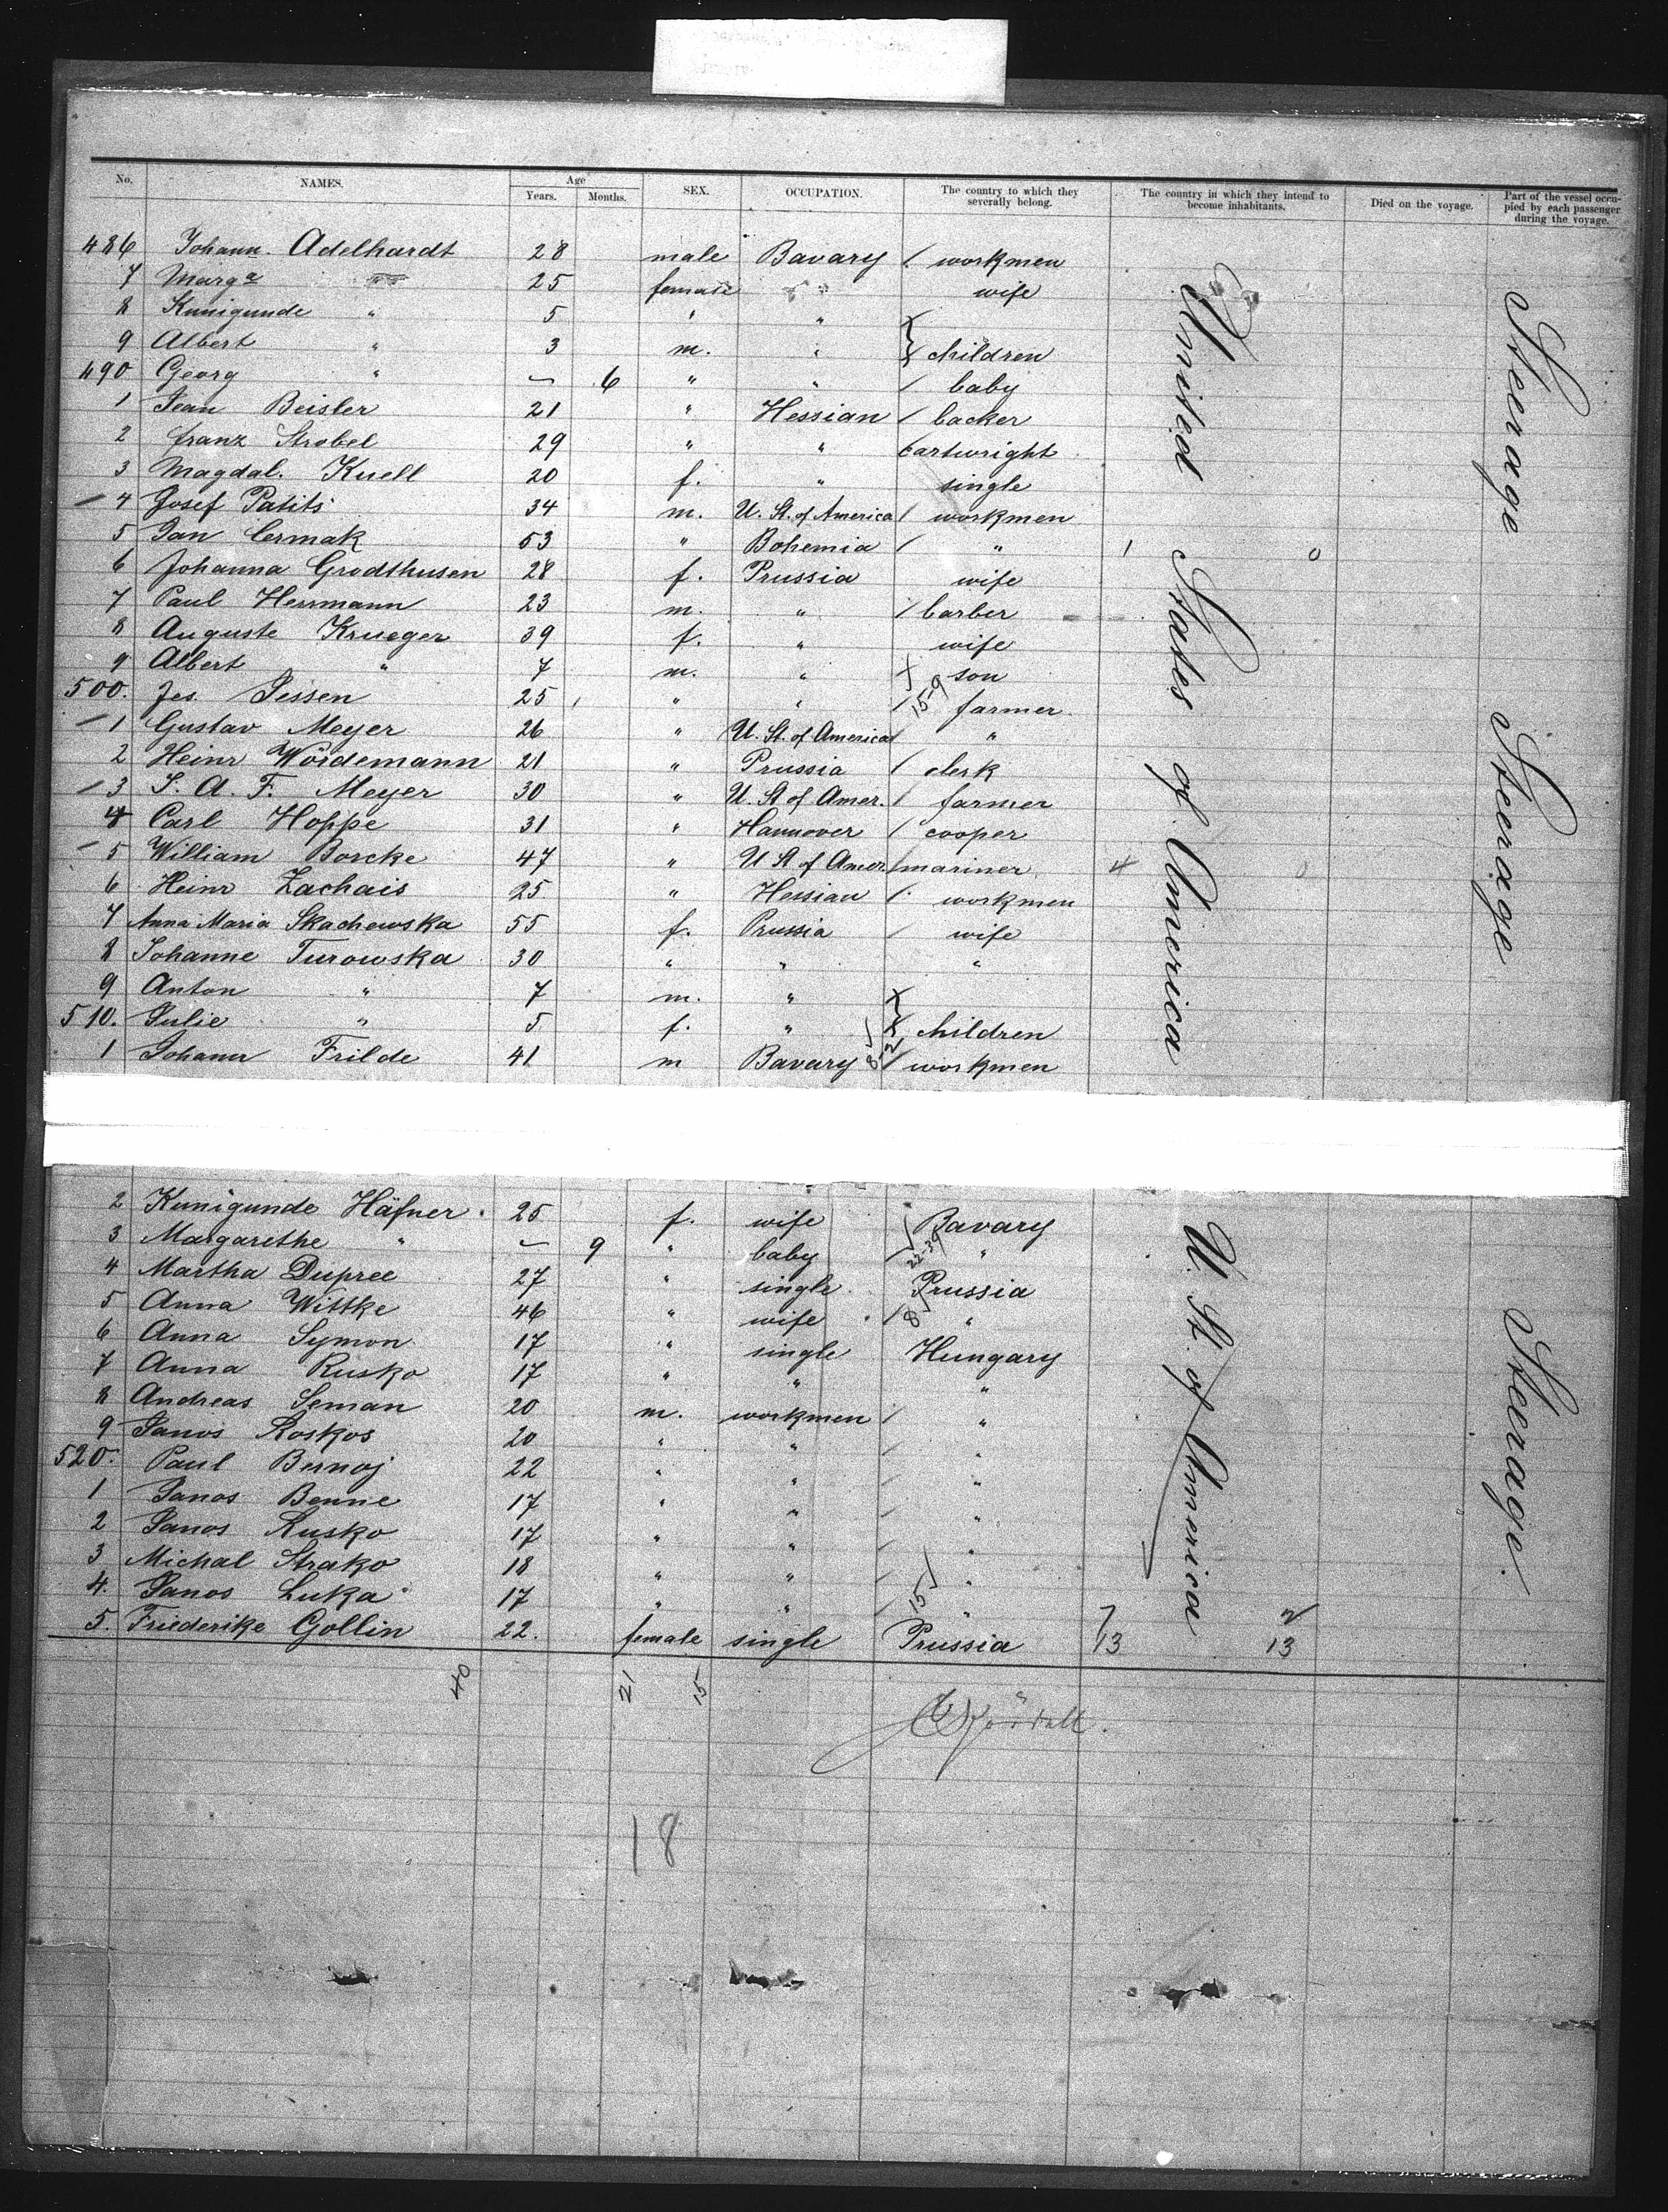 No. NAMES. Age Years. Months. SEX. OCCUPATION. The country to which they severally belong. The country in which they intend to become inhabitants. Died on the voyage. Part of the vessel occupied by each passenger during the voyage.
486 Johann Adelhardt 28 male Bavary / workmen
7 Marga " 25 female " wife
8 Kunigunde " 5 " "
9 Albert " 3 m. " children
490 Georg " – 6 " " / baby
1 Jean Beisler 21 " Hessian / backer
2 Franz Strobel 29 " " cartwright
3 Magdal. Knell 20 f. " single
– 4 Josef Patits 34 m. U. St. of America / workmen
5 Jan Cermak 53 " Bohemia / " 1 0
6 Johanna Grodthusen 28 f. Prussia wife
7 Paul Herrmann 23 m. " / barber
8 Auguste Krueger 39 f. " wife
9 Albert " 7 m. " son
500. Jes. Jessen 25 " " / 15-9 farmer
– 1 Gustav Meyer 26 " U. St. of America / "
2 Heinr Wördemann 21 " Prussia / clerk
– 3 J. A. F. Meyer 30 " U. St of Amer. / farmer
4 Carl Hoppe 31 " Hannover / cooper
– 5 William Borcke 47 " U St of Amer. / mariner 4 0
6 Heinr Zachais 25 " Hessian / workmen
7 Anna Maria Skachewska 55 f. Prussia / wife
8 Johanne Turowska 30 " " "
9 Anton " 7 m. "
510. Julie " 5 f. " children
1 Johann Frilde 41 m Bavary 8-2 / workmen
United States of America
Steerage
Steerage
2 Kunigunde Häfner 25 f. wife Bavary
3 Margarethe " – 9 " baby / 22-39 "
4 Martha Dupree 27 " single Prussia
5 Anna Wittke 46 " wife / 8 "
6 Anna Symon 17 " single Hungary
7 Anna Rusko 17 " " "
8 Andreas Seman 20 m. workmen / "
9 Janos Koskos 20 " " / "
520. Paul Bernoj 22 " " / "
1 Janos Benne 17 " " / "
2 Janos Rusko 17 " " / "
3 Michal Strako 18 " " / "
4. Janos Luka 17 " " / 15 "
5. Friederike Gollin 22. female single Prussia 13 13
U. St. of America
Steerage.
40 21 15
18